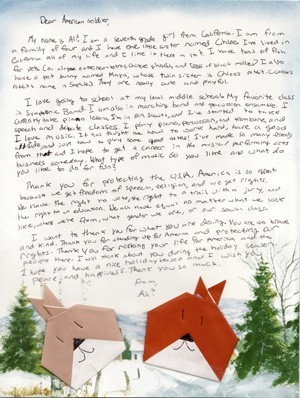 Dear American soldier,
My name is Ali! I am a seventh grade girl from California. I am from
a family of four and I have one little sister named Chloe. I've lived in
California all of my life and I like it there a lot. I have
for pets
have a pet bunny named Maya, whose twin sister is Chloe's rabbit. Chloe's
rabbit's name is Sophie. They are really cute and playful.
I love going to school at my local middle school. My favorite class
is Symphonic Band. I am also in marching band and percussion ensemble. I
I'm in and I've started to take
speech and debate classes. I play piano, percussion, and trombone, and
I love music. It has taught me how to work hard, have a good
attitude, and just how to play some good I've made so many friends
from that and I hope to get a career in the musical/performing arts
business someday. What type of music do you like and what do
you like to do for fun?
Thank you for protecting the USA. America is so great
because we get freedom of speech, religion, and we get rights.
We have the right to vote, the right to a trial with a jury, and
the right to an education. We all have equal no matter what we look
like, where we're from, what gender we are, or our social class.
I want to thank you for what you are doing. You are so brave
and kind. Thank you for standing up for America and protecting our
rights. Thank you for risking your life for America and the
people there. I will think about you during the holiday season.
I hope you have a nice holiday season and I wish you
peace and happiness. Thank you so much.
From
Ali